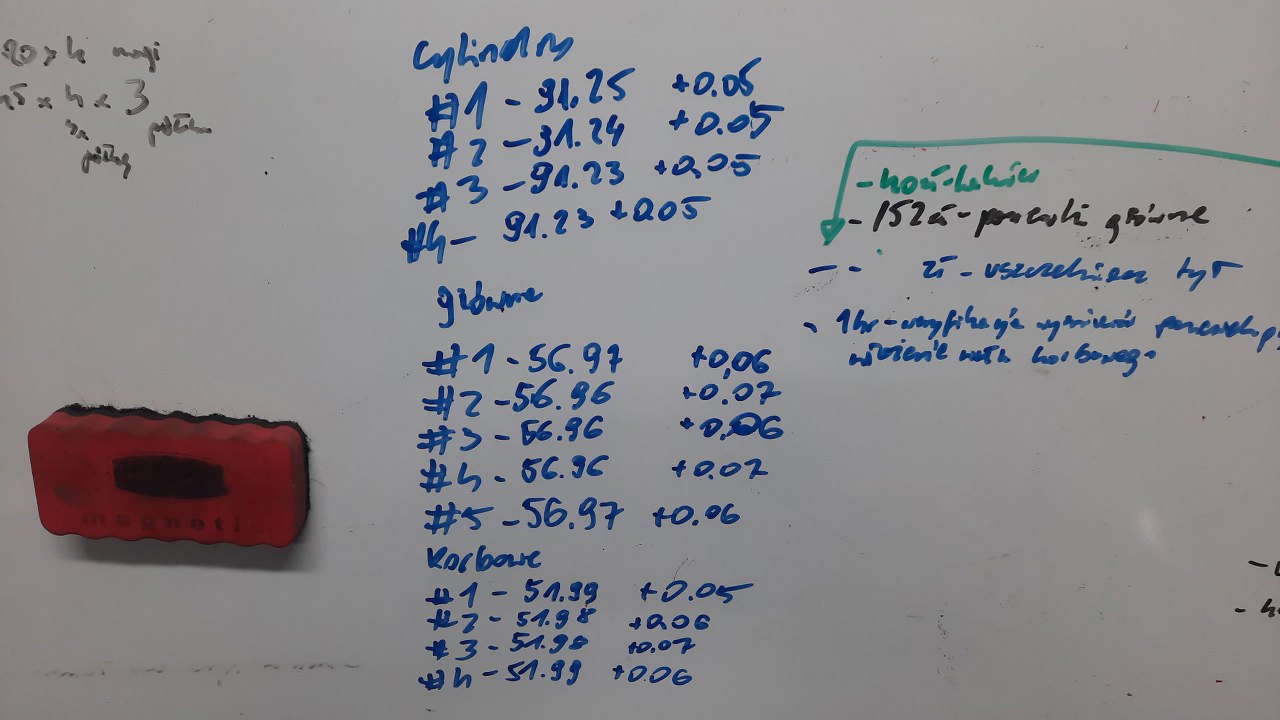 20 x 4
x 4 x 3
Cylindry
#1 - 91.25 +0.05
#2 - 91.24 +0.05
#3 - 91.23 +0,05
#4 - 91.23 +0.05
główne
#1 - 56.97 +0,06
#2 - 56.96 +0.07
#3 - 56.96 +0,06
#4 - 56.96 +0.07
#5 - 56.97 +0.06
Korbowe
#1 - 51.99 +0.05
#2 - 51.98 +0.06
#3 - 51.98 +0.07
#4 - 51.99 +0.06
- 152zł - panewki główne
zł - uszczelniacz tył
1hr - weryfikacja wymiarów
wału korbowego
magneti